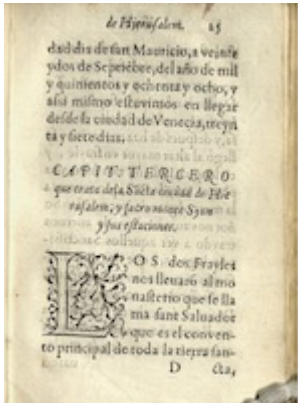 de Hierusalem. 25
dad dia de san Mauricio, a veinte
y dos de Septiẽbre, del año de mil
y quinientos y ochenta y ocho, y
assi mismo estuvimos en llegar
desde la ciudad de Venecia, treyn
ta y siete dias.
CAPIT. TERCERO
que trata de la Sãcta ciudad de Hie
rusalem, y sacro monte Syon
y sus estaciones.
LOS dos Frayles
nos llevarõ al mo
nasterio que se lla
ma sant Salvador
que es el conven-
to principal de toda la tierra san-
D cta,